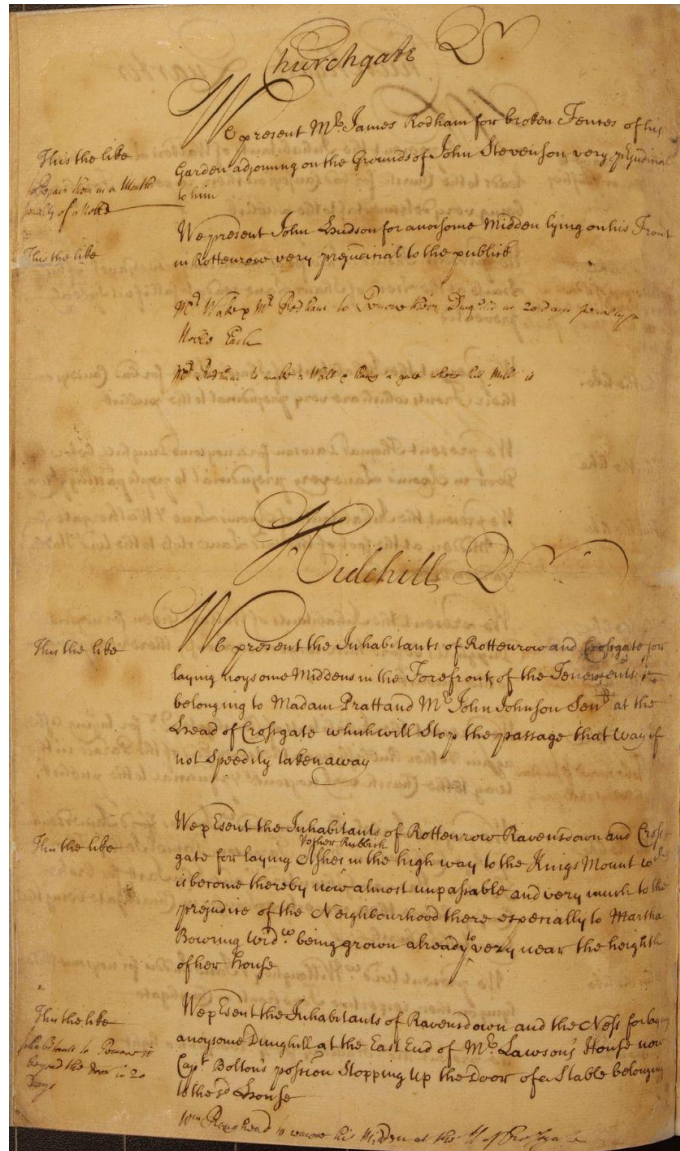 Churchgate Qr
We present Mr James Rodham for broken Fences of his
Garden adjoining on the Grounds of John Stevenson very prejudicial
to him
This the like
to Repair them in a Month
penalty of a Noble
We present John Hudson for anoysome Midden lying on his Front
in Rottenrow very prejudicial to the publick
This the like
Mr Wake & Mr Rodham to Remove their Dunghill in 20 days penalty
Noble Each
Mr Rodham to make a Wall & hang a gate where his Midd is
Hidehill Qr
This the like
We present the Inhabitants of Rottenrow and Crossgate for
laying noysome Middens in the Forefront of the Tenements
belonging to Madam Pratt and Mr John Johnson Senr at the
Head of Crossgate which will Stop the passage that way if
not Speedily taken away
This the like
We pEsent the Inhabitants of Rottenrow Ravensdown and Cross-
& other Rubbish
gate for laying Ashes in the high way to the Kings Mount wch
is become thereby now almost unpassable and very much to the
prejudice of the Neighbourhood there especially to Martha
Bowring Widw being grown already to very near the heighth
of her house
This the like
We pEsent the Inhabitants of Ravensdown and the Ness for laying
anoysome Dunghill at the East End of Mr Lawson's House now
Capt Bolton's possion Stopping up the Door of a Stable belonging
to the sd House
Inhabitants to Remove it
beyond the Door in 20
Days
Wm Roughead to remove his Midden at the of